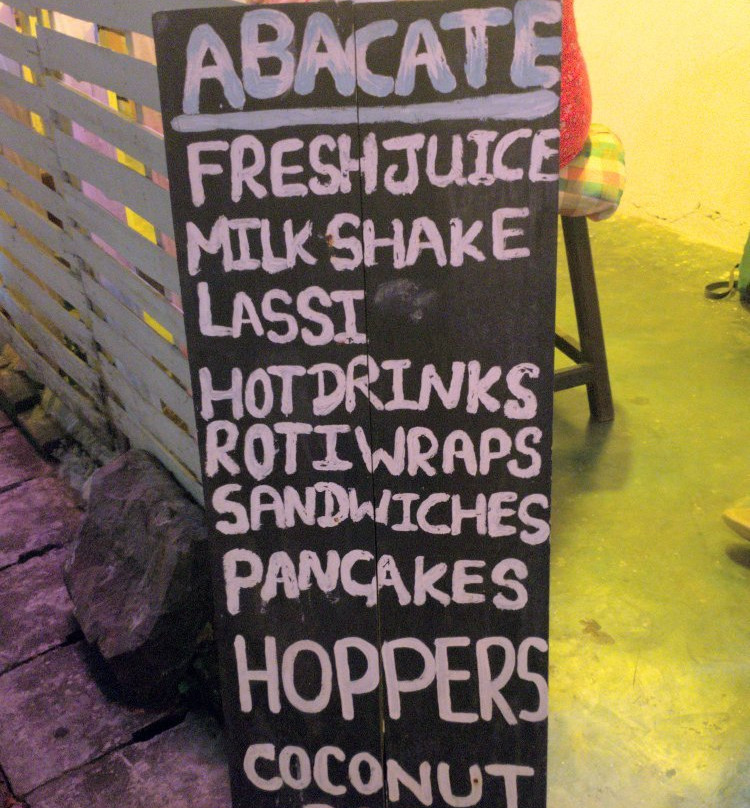 ABACATE
FRESH JUICE
MILK SHAKE
LASSI
HOT DRINKS
ROTI WRAPS
SANDWICHES
PANCAKES
HOPPERS
COCONUT